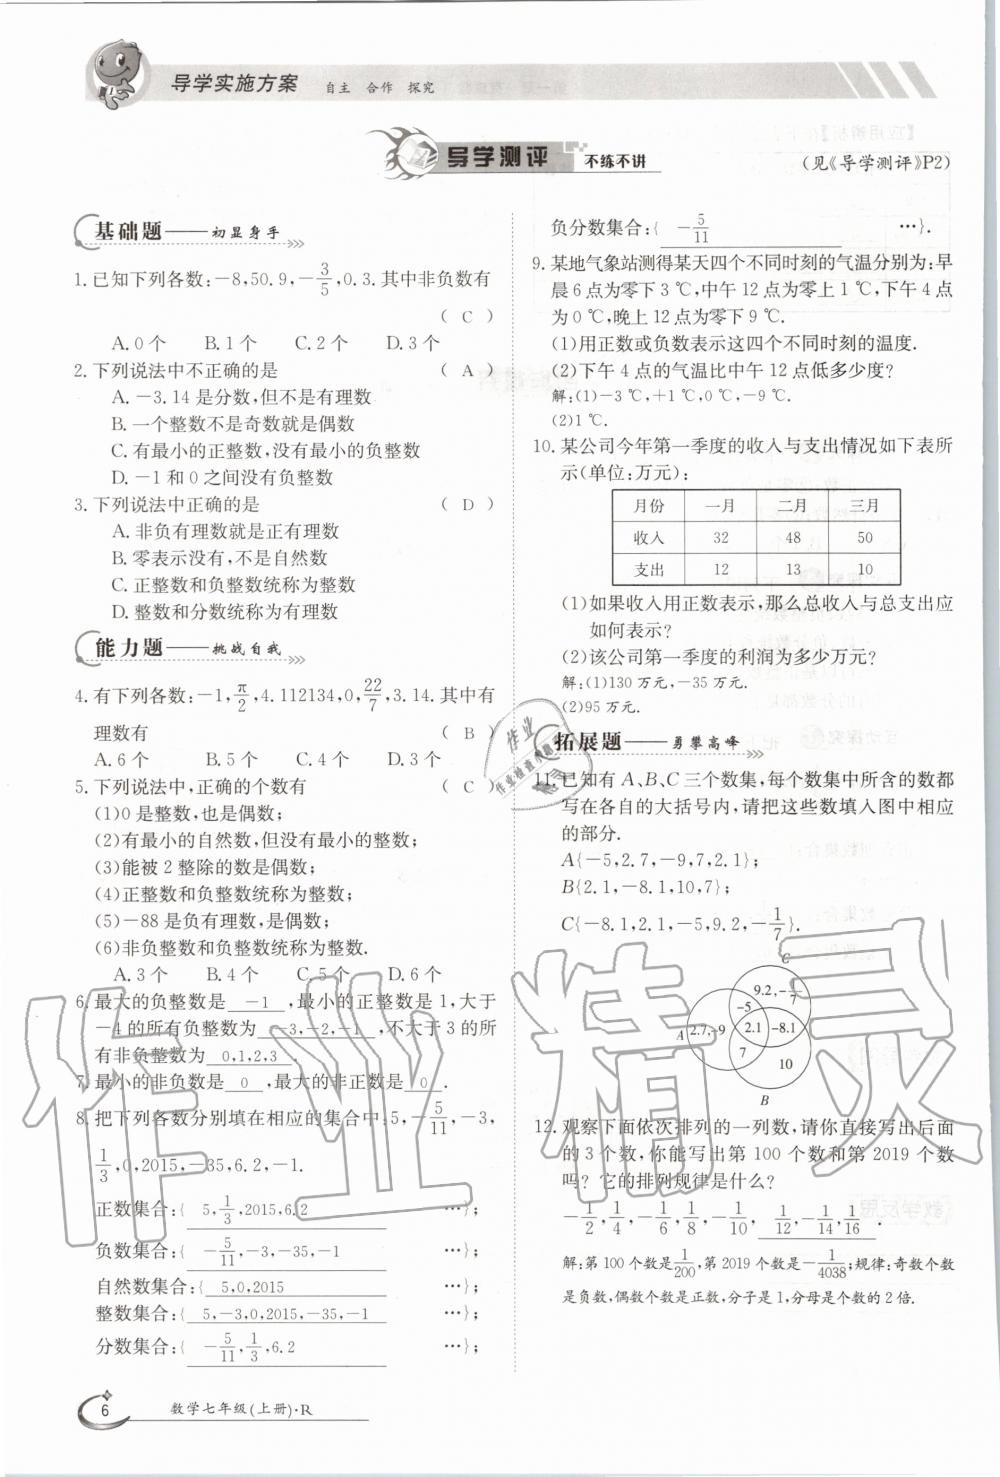 导学实施方案 自主 合作 探究
导学测评 不练不讲
(见《导学测评》P2)
基础题——初显身手
1.已知下列各数:-8,50.9,-3/5,0.3.其中非负数有
( C )
A.0个 B.1个 C.2个 D.3个
2.下列说法中不正确的是 ( A )
A.-3.14是分数,但不是有理数
B.一个整数不是奇数就是偶数
C.有最小的正整数,没有最小的负整数
D.-1和0之间没有负整数
3.下列说法中正确的是 ( D )
A.非负有理数就是正有理数
B.零表示没有,不是自然数
C.正整数和负整数统称为整数
D.整数和分数统称为有理数
能力题——挑战自我
4.有下列各数:-1,π/2,4.112134,0,22/7,3.14.其中有
理数有 ( B )
A.6个 B.5个 C.4个 D.3个
5.下列说法中,正确的个数有 ( C )
(1)0是整数,也是偶数;
(2)有最小的自然数,但没有最小的整数;
(3)能被2整除的数是偶数;
(4)正整数和负整数统称为整数;
(5)-88是负有理数,是偶数;
(6)非负整数和负整数统称为整数.
A.3个 B.4个 C.5个 D.6个
6.最大的负整数是 -1 ,最小的正整数是1,大于
-4的所有负整数为 -3,-2,-1 ,不大于3的所
有非负整数为 0,1,2,3 .
7.最小的非负数是 0 ,最大的非正数是 0 .
8.把下列各数分别填在相应的集合中:5,-5/11,-3,
1/3,0,2015,-35,6.2,-1.
正数集合:{ 5,1/3,2015,6.2 …};
负数集合:{ -5/11,-3,-35,-1 …};
自然数集合:{ 5,0,2015 …};
整数集合:{ 5,-3,0,2015,-35,-1 …};
分数集合:{ -5/11,1/3,6.2 …};
负分数集合:{ -5/11 …}.
9.某地气象站测得某天四个不同时刻的气温分别为:早
晨6点为零下3℃,中午12点为零上1℃,下午4点
为0℃,晚上12点为零下9℃.
(1)用正数或负数表示这四个不同时刻的温度.
(2)下午4点的气温比中午12点低多少度?
解:(1)-3℃,+1℃,0℃,-9℃.
(2)1℃.
10.某公司今年第一季度的收入与支出情况如下表所
示(单位:万元):
月份 一月 二月 三月
收入 32 48 50
支出 12 13 10
(1)如果收入用正数表示,那么总收入与总支出应
如何表示?
(2)该公司第一季度的利润为多少万元?
解:(1)130万元,-35万元.
(2)95万元.
拓展题——勇攀高峰
11.已知有A、B、C三个数集,每个数集中所含的数都
写在各自的大括号内,请把这些数填入图中相应
的部分.
A{-5,2.7,-9,7,2.1};
B{2.1,-8.1,10,7};
C{-8.1,2.1,-5,9.2,-1/7}.
C
9.2,-1/7
-5
A 2.7,-9 2.1 -8.1
7 10
B
12.观察下面依次排列的一列数,请你直接写出后面
的3个数,你能写出第100个数和第2019个数
吗?它的排列规律是什么?
-1/2,1/4,-1/6,1/8,-1/10, 1/12,-1/14,1/16 .
解:第100个数是1/200,第2019个数是-1/4038;规律:奇数个数
是负数,偶数个数是正数,分子是1,分母是个数的2倍.
6 数学七年级(上册)·R
作业精灵